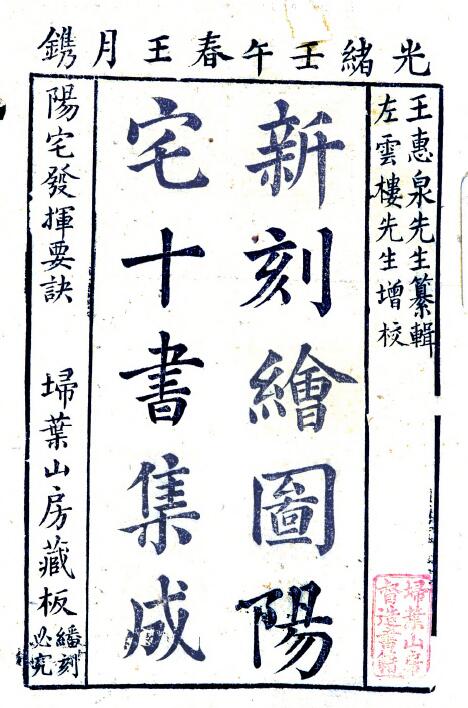 光緒壬午春王月鐫
王惠泉先生纂輯
左雲樓先生增校
新刻繪圖陽
宅十書集成
陽宅發揮要訣
埽葉山房藏板
繙刻
必究
埽葉山房
督造書籍